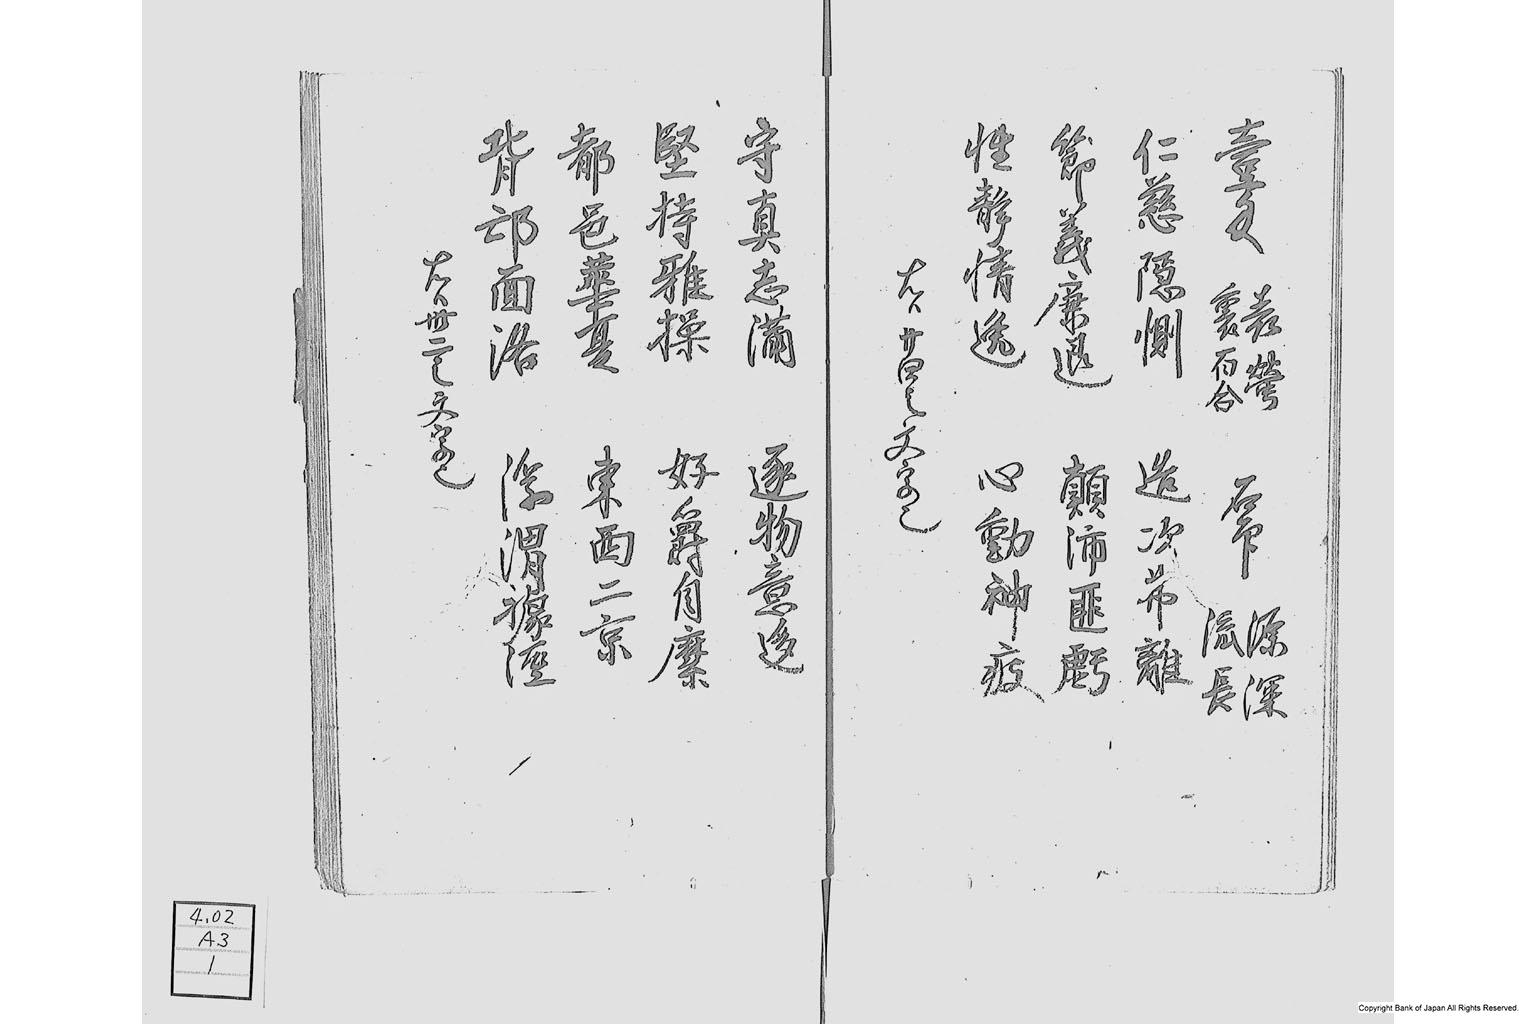 源深
流長
仁慈隠惻 造次弗離
節義廉退 顛沛匪虧
性静情逸 心動神疲
右八廿四之文字也
守真志満 逐物意移
堅持雅操 好爵自縻
都邑華夏 東西二京
背邙面洛 浮渭據涇
右八卅二之文字也
4.02
A3
1
Copyright Bank of Japan All Rights Reserved.